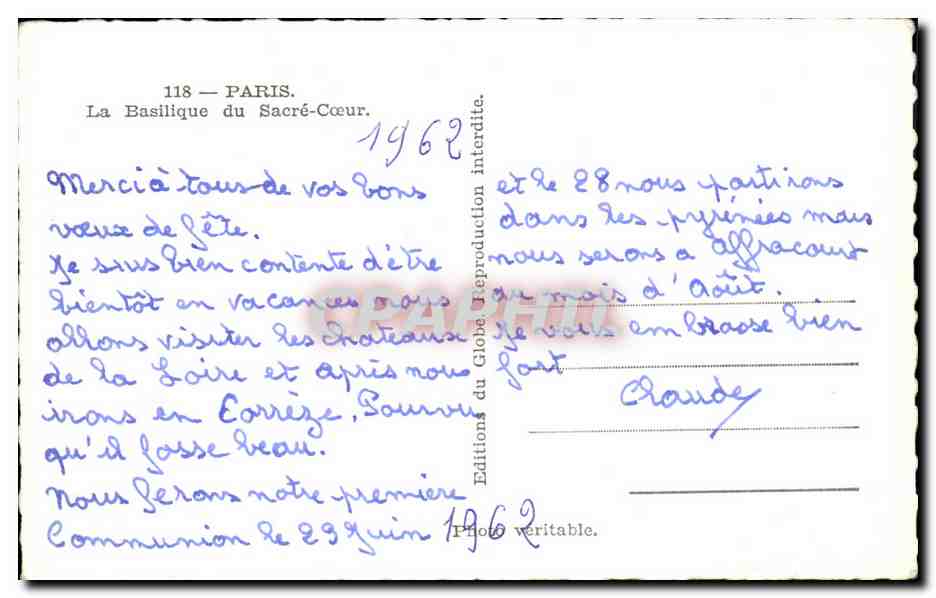 118 — PARIS.
La Basilique du Sacré-Cœur.
1962
Merci à tous de vos bons
vœux de fête.
Je suis bien contente d'être
bientôt en vacances nous
allons visiter les chateaux
de la Loire et après nous
irons en Corrèze. Pourvu
qu'il fasse beau.
Nous ferons notre première
Communion le 23 Juin 1962
Editions du Globe. Reproduction interdite.
Photo véritable.
et le 28 nous partirons
dans les pyrénées mais
nous serons a Affracourt
au mois d'Août.
Je vous embrasse bien
fort
Claude
CPAPHIL